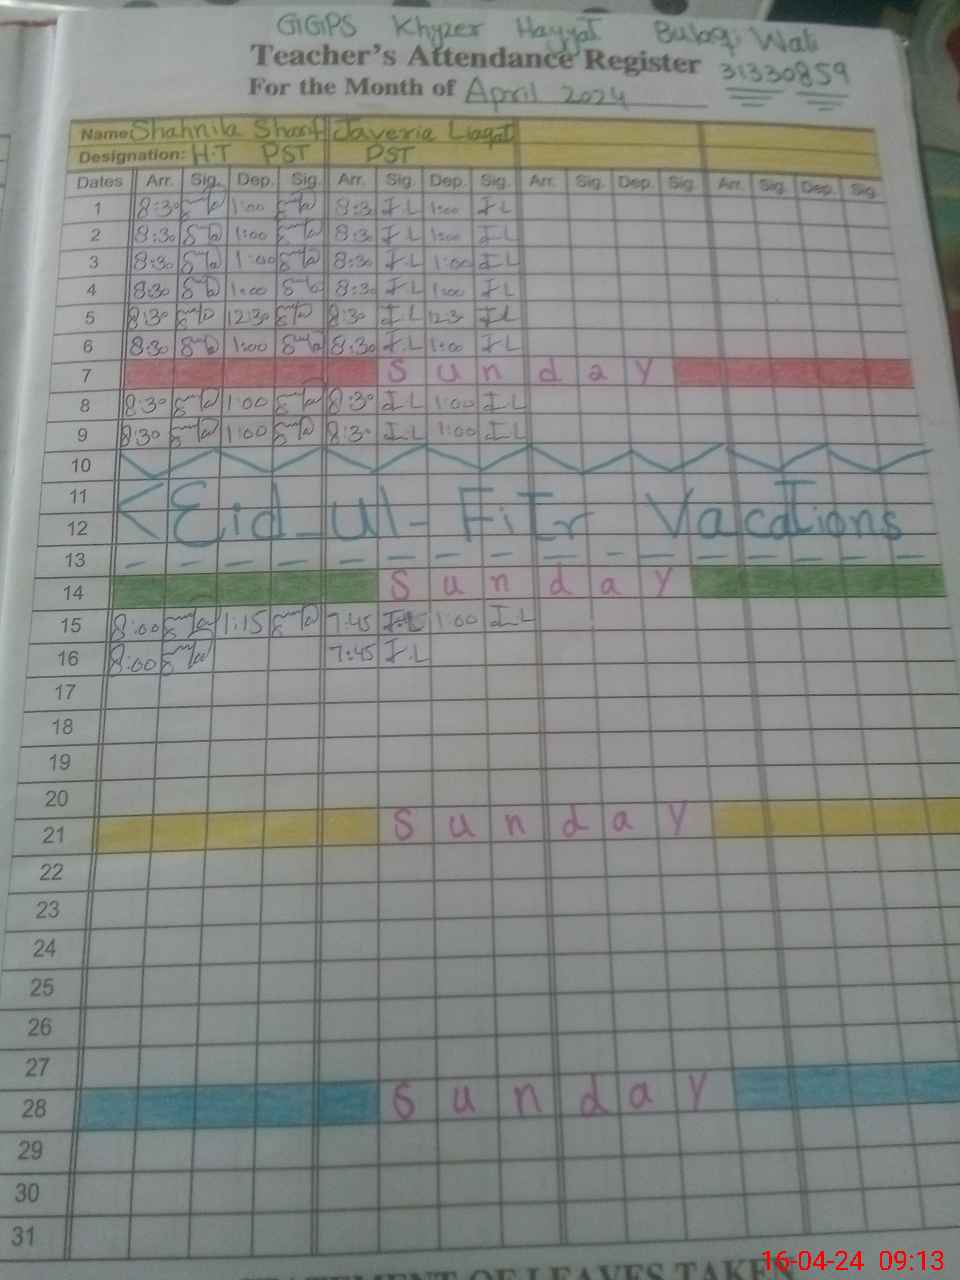 GGPS Khyzer Hayyat Bulaqi Wali
Teacher's Attendance Register 31330859
For the Month of April 2024
Name: Shahnila Sharif Javeria Liaqat
Designation: H.T PST PST
Dates Arr. Sig. Dep. Sig. Arr. Sig. Dep. Sig. Arr. Sig. Dep. Sig. Arr. Sig. Dep. Sig.
1 8:30 1:00 8:3 I L 1:00 I L
2 8:30 1:00 8:30 I L 1:00 I L
3 8:30 1:00 8:30 I L 1:00 I L
4 8:30 1:00 8:30 I L 1:00 I L
5 8:30 12:30 8:30 I L 12:3 I L
6 8:30 1:00 8:30 I L 1:00 I L
7 Sunday
8 8:30 1:00 8:30 I L 1:00 I L
9 8:30 1:00 8:30 I L 1:00 I L
10
11
12 Eid-ul-Fitr Vacations
13
14 Sunday
15 8:00 1:15 7:45 1:00 I L
16 8:00 7:45 I L
17
18
19
20
21 Sunday
22
23
24
25
26
27
28 Sunday
29
30
31
STATEMENT OF LEAVES TAKEN
16-04-24 09:13